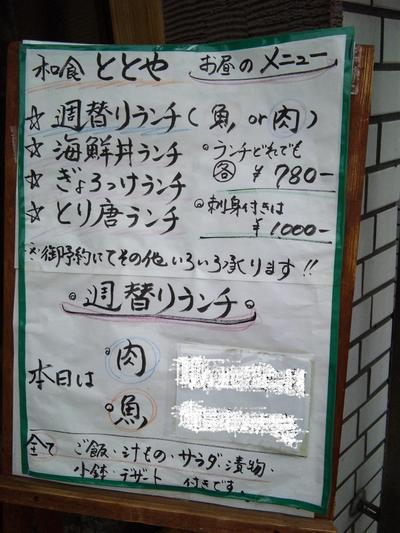 和食 ととや お昼のメニュー
☆ 週替りランチ(魚 or 肉)
☆ 海鮮丼ランチ
☆ ぎょろっけランチ
☆ とり唐ランチ
。ランチどれでも
各 ¥780-
。刺身付きは
¥1000-
※御予約にてその他いろいろ承ります!!
。週替りランチ。
本日は
。肉
。魚
全て ご飯・汁もの・サラダ・漬物・
小鉢・デザート 付きです。